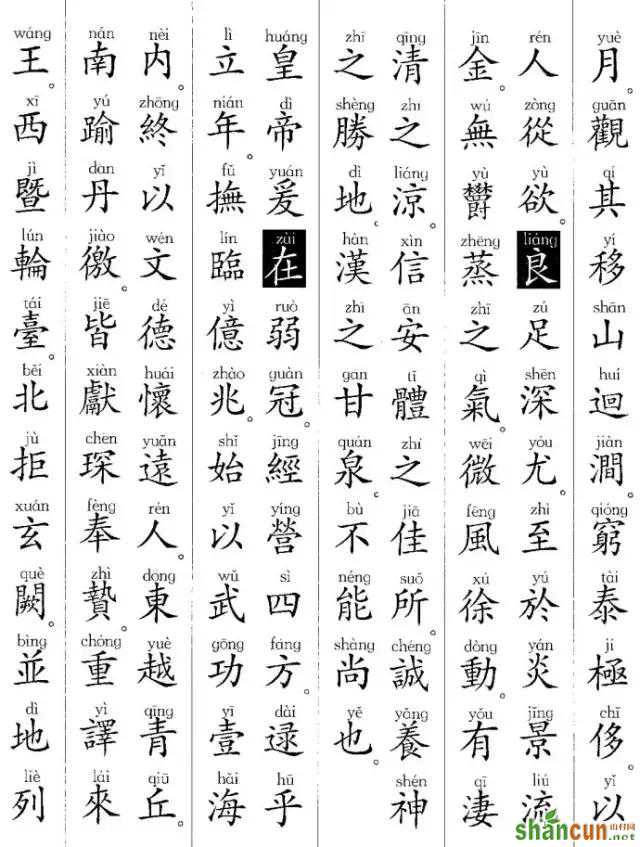 yuè guān qí yí shān huí jiàn qióng tài jí chǐ yǐ
月觀其移山迴澗窮泰極侈以
rén zòng yù liáng zú shēn yóu zhì yú yán jǐng liú
人從欲。良足深尤。至於炎景流
jīn wú yù zhēng zhī qì wēi fēng xú dòng yǒu qī
金。無鬱蒸之氣。微風徐動。有淒
qīng zhī liáng xìn ān tǐ zhī jiā suǒ chéng yǎng shén
清之涼。信安體之佳所。誠養神
zhī shèng dì hàn zhī gan quán bù néng shàng yě
之勝地。漢之甘泉。不能尚也。
huáng dì yuán zài ruò guàn jīng yíng sì fāng dài hū
皇帝爰在弱冠。經營四方。逯乎
lì nián fǔ lín yì zhào shǐ yǐ wǔ gōng yī hǎi
立年。撫臨億兆。始以武功壹海
nèi zhōng yǐ wén dé huái yuǎn rén dong yuè qīng qiū
内。終以文德懷遠人。東越青丘。
nán yú dān jiào jiē xiàn chen fèng zhì chóng yì lái
南踰丹徼。皆獻琛奉贄。重譯來
wáng xī jì lún tái běi jù xuán què bìng dì liè
王。西暨輪臺。北拒玄闕。並地列
shancun 山村网
.net